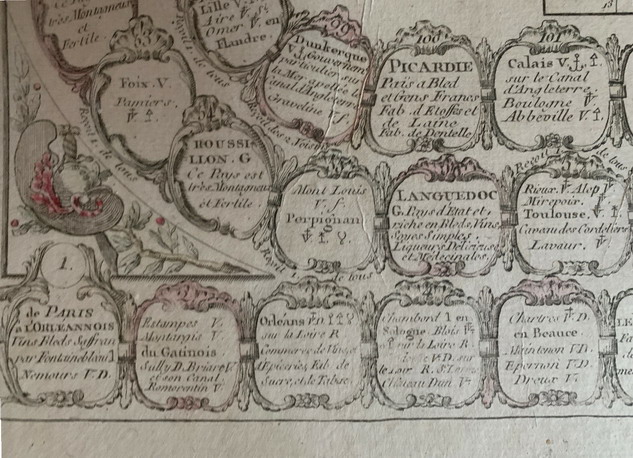 très Montagneux
et
Fertile.
Lille V.
Aire
Omer
en
Flandre.
99
Dunkerque
V.
Gouvernem.
particulier sur
la Mer apellée le
Canal d'Angleterre
Graveline
100
PICARDIE
Païs a Bled
et Gens Francs
Fab. d'Etoffes et
de Laine
Fab. de Dentelle
101
Calais V.
sur le Canal
d'Angleterre
Boulogne
Abbeville V.
53
Foix. V.
Pamiers.
54
ROUSSI-
LLON. G
Ce Pays est
très Montagneux
et Fertile
Mont Louis
V. f.
Perpignan
LANGUEDOC
G. Pays d'Etat et
riche en Bleds, Vins,
Soyes Simples.
Liqueurs
et Médecinales.
Rieux. V. Alep
Mirepoix.
Toulouse. V.
Lavaur.
1.
de PARIS
a l'ORLEANNOIS
Vins Bleds Saffran
par Fontainebleau
Nemours V. D.
Estampes V.
Montargis V.
du Gatinois.
Sully D. Briare V.
et son Canal
Romorentin V.
Orléans
sur la Loire R
Commerce de Vins
Epiceries, Fab. de
Sucre, et de Tabac
Chambord 1 en
Sologne. Blois
sur la Loire R
V. D. sur
le Loir R.
Château Dun V.
Chartres V. D.
en Beauce.
Maintenon V D.
Epernon V D.
Dreux V.